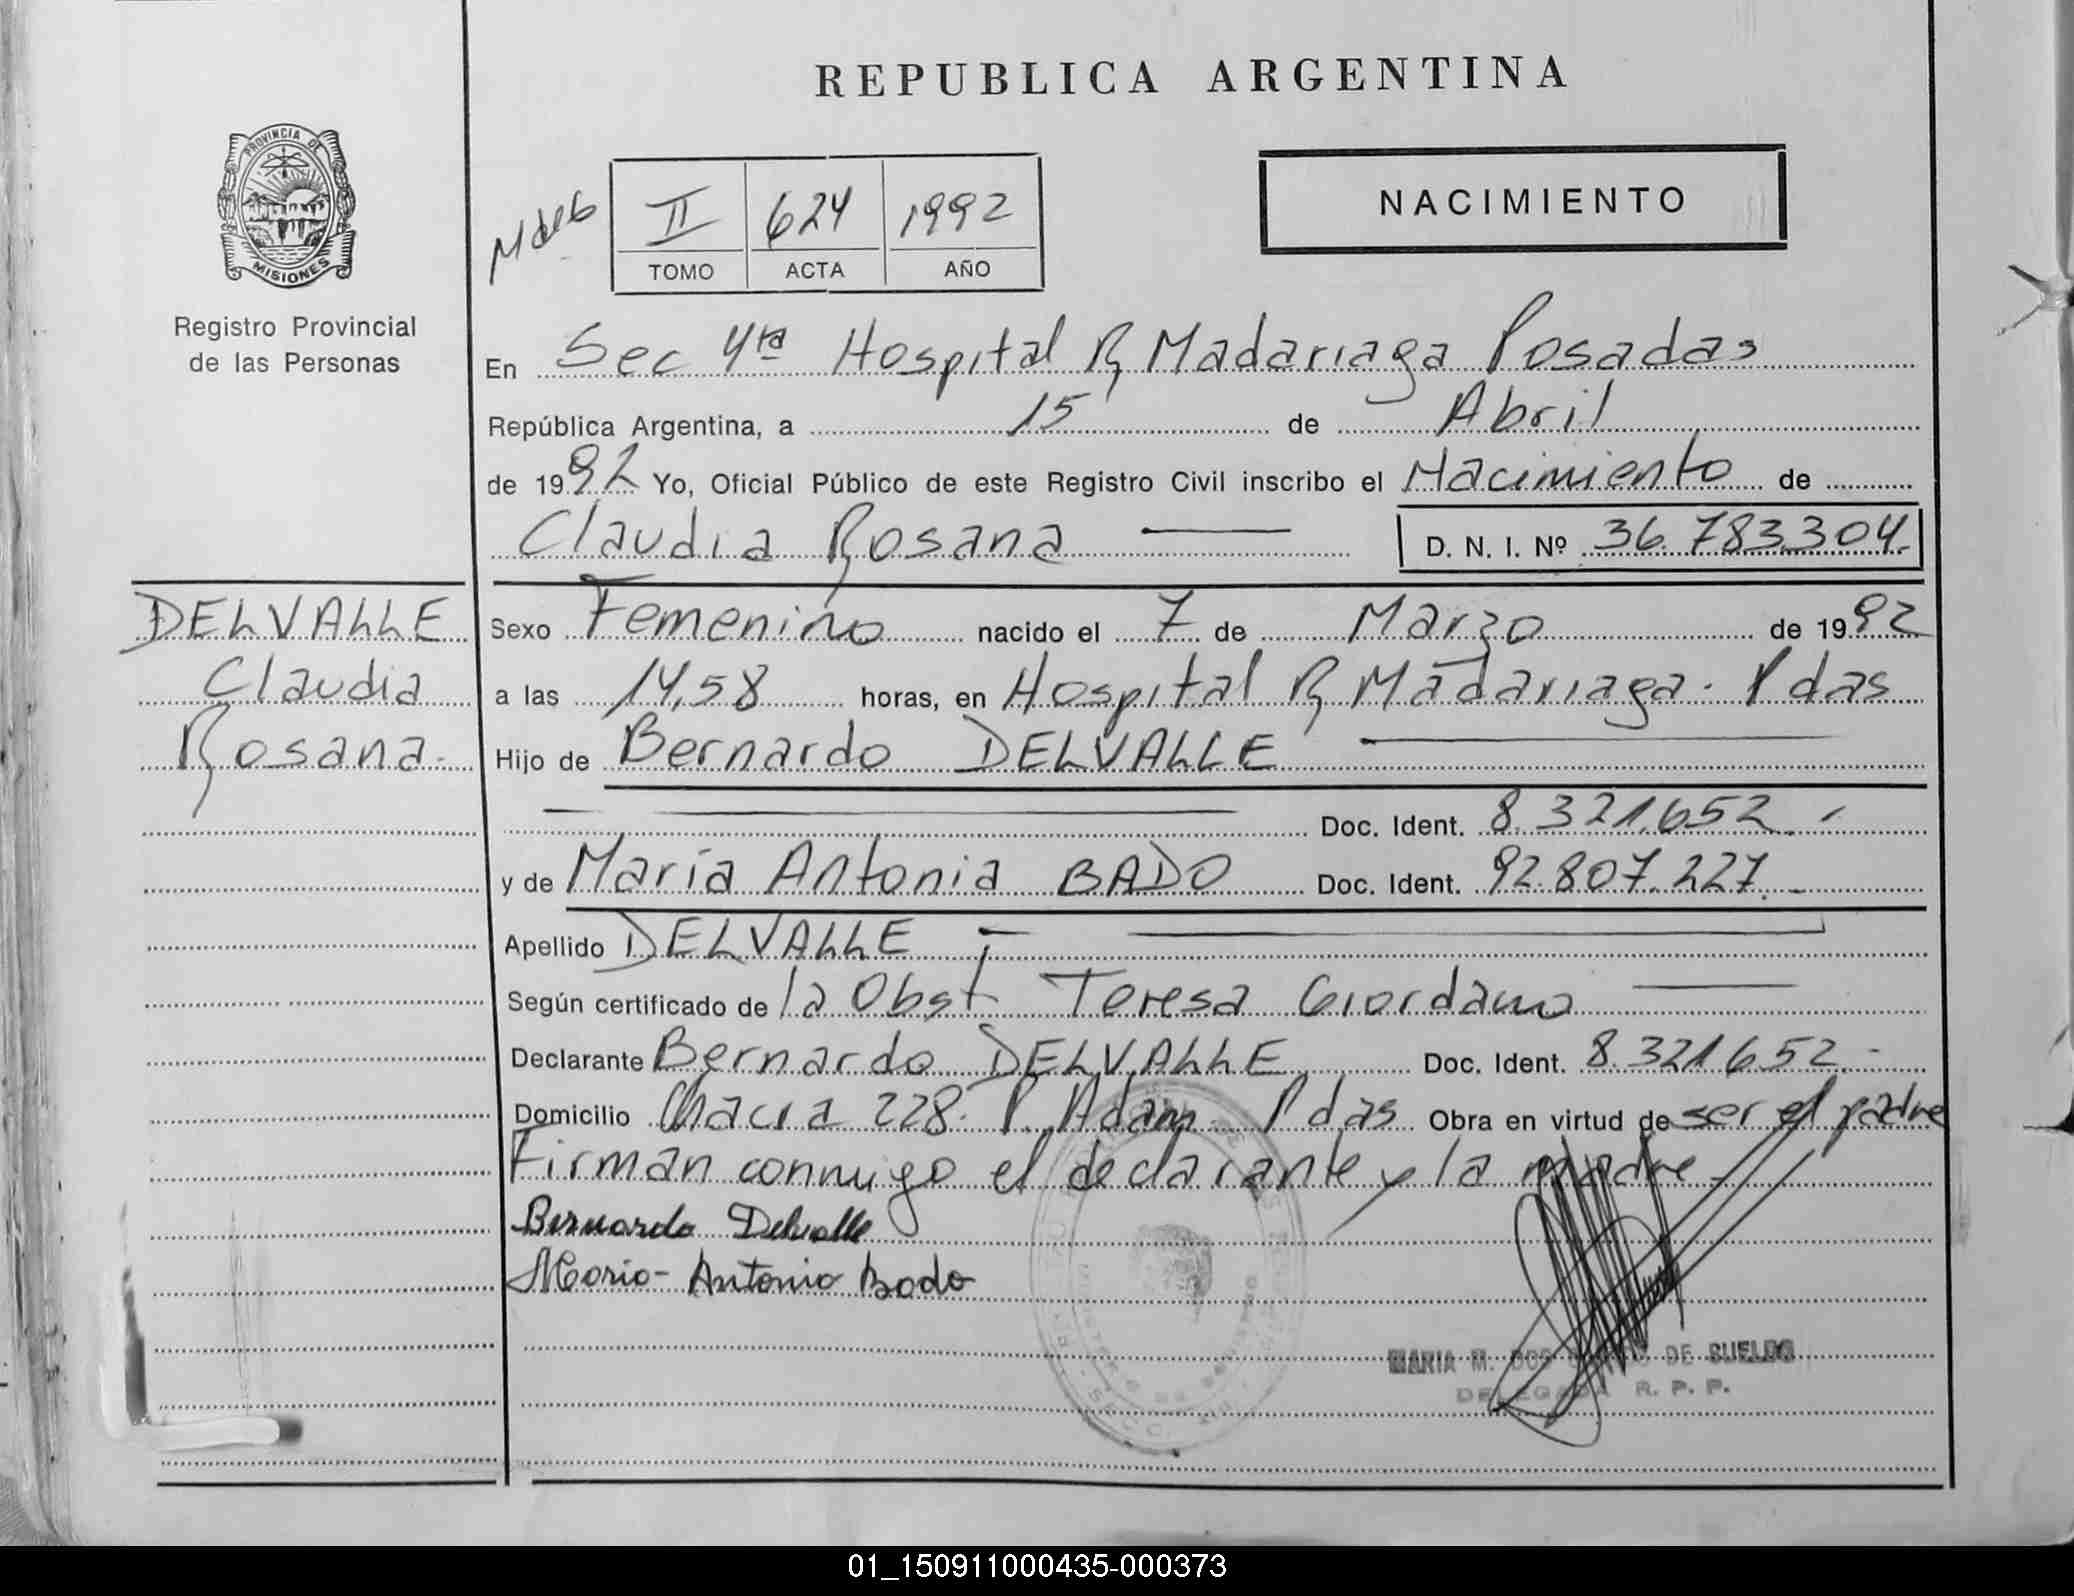 REPUBLICA ARGENTINA
PROVINCIA DE
MISIONES
Registro Provincial
de las Personas
II 624 1992
TOMO ACTA AÑO
NACIMIENTO
En Sec 4ta Hospital R Madariaga Posadas
República Argentina, a 15 de Abril
de 1992 Yo, Oficial Público de este Registro Civil inscribo el Nacimiento de
Claudia Rosana D. N. I. Nº 36.783.304.
DELVALLE
Claudia
Rosana.
Sexo Femenino nacido el 7 de Marzo de 1992
a las 14,58 horas, en Hospital R Madariaga. Pdas
Hijo de Bernardo DELVALLE
Doc. Ident. 8.321.652.
y de María Antonia BADO Doc. Ident. 92.807.227.
Apellido DELVALLE
Según certificado de la Obst. Teresa Giordano
Declarante Bernardo DELVALLE Doc. Ident. 8.321652.
Domicilio Chacra 228. P. Adam Pdas Obra en virtud de ser el padre
Firman conmigo el declarante y la madre.
Bernardo Delvalle
Maria-Antonia Bado
MARIA M. DOS DE SUELDO
DELEGADA R. P. P.
01_150911000435-000373